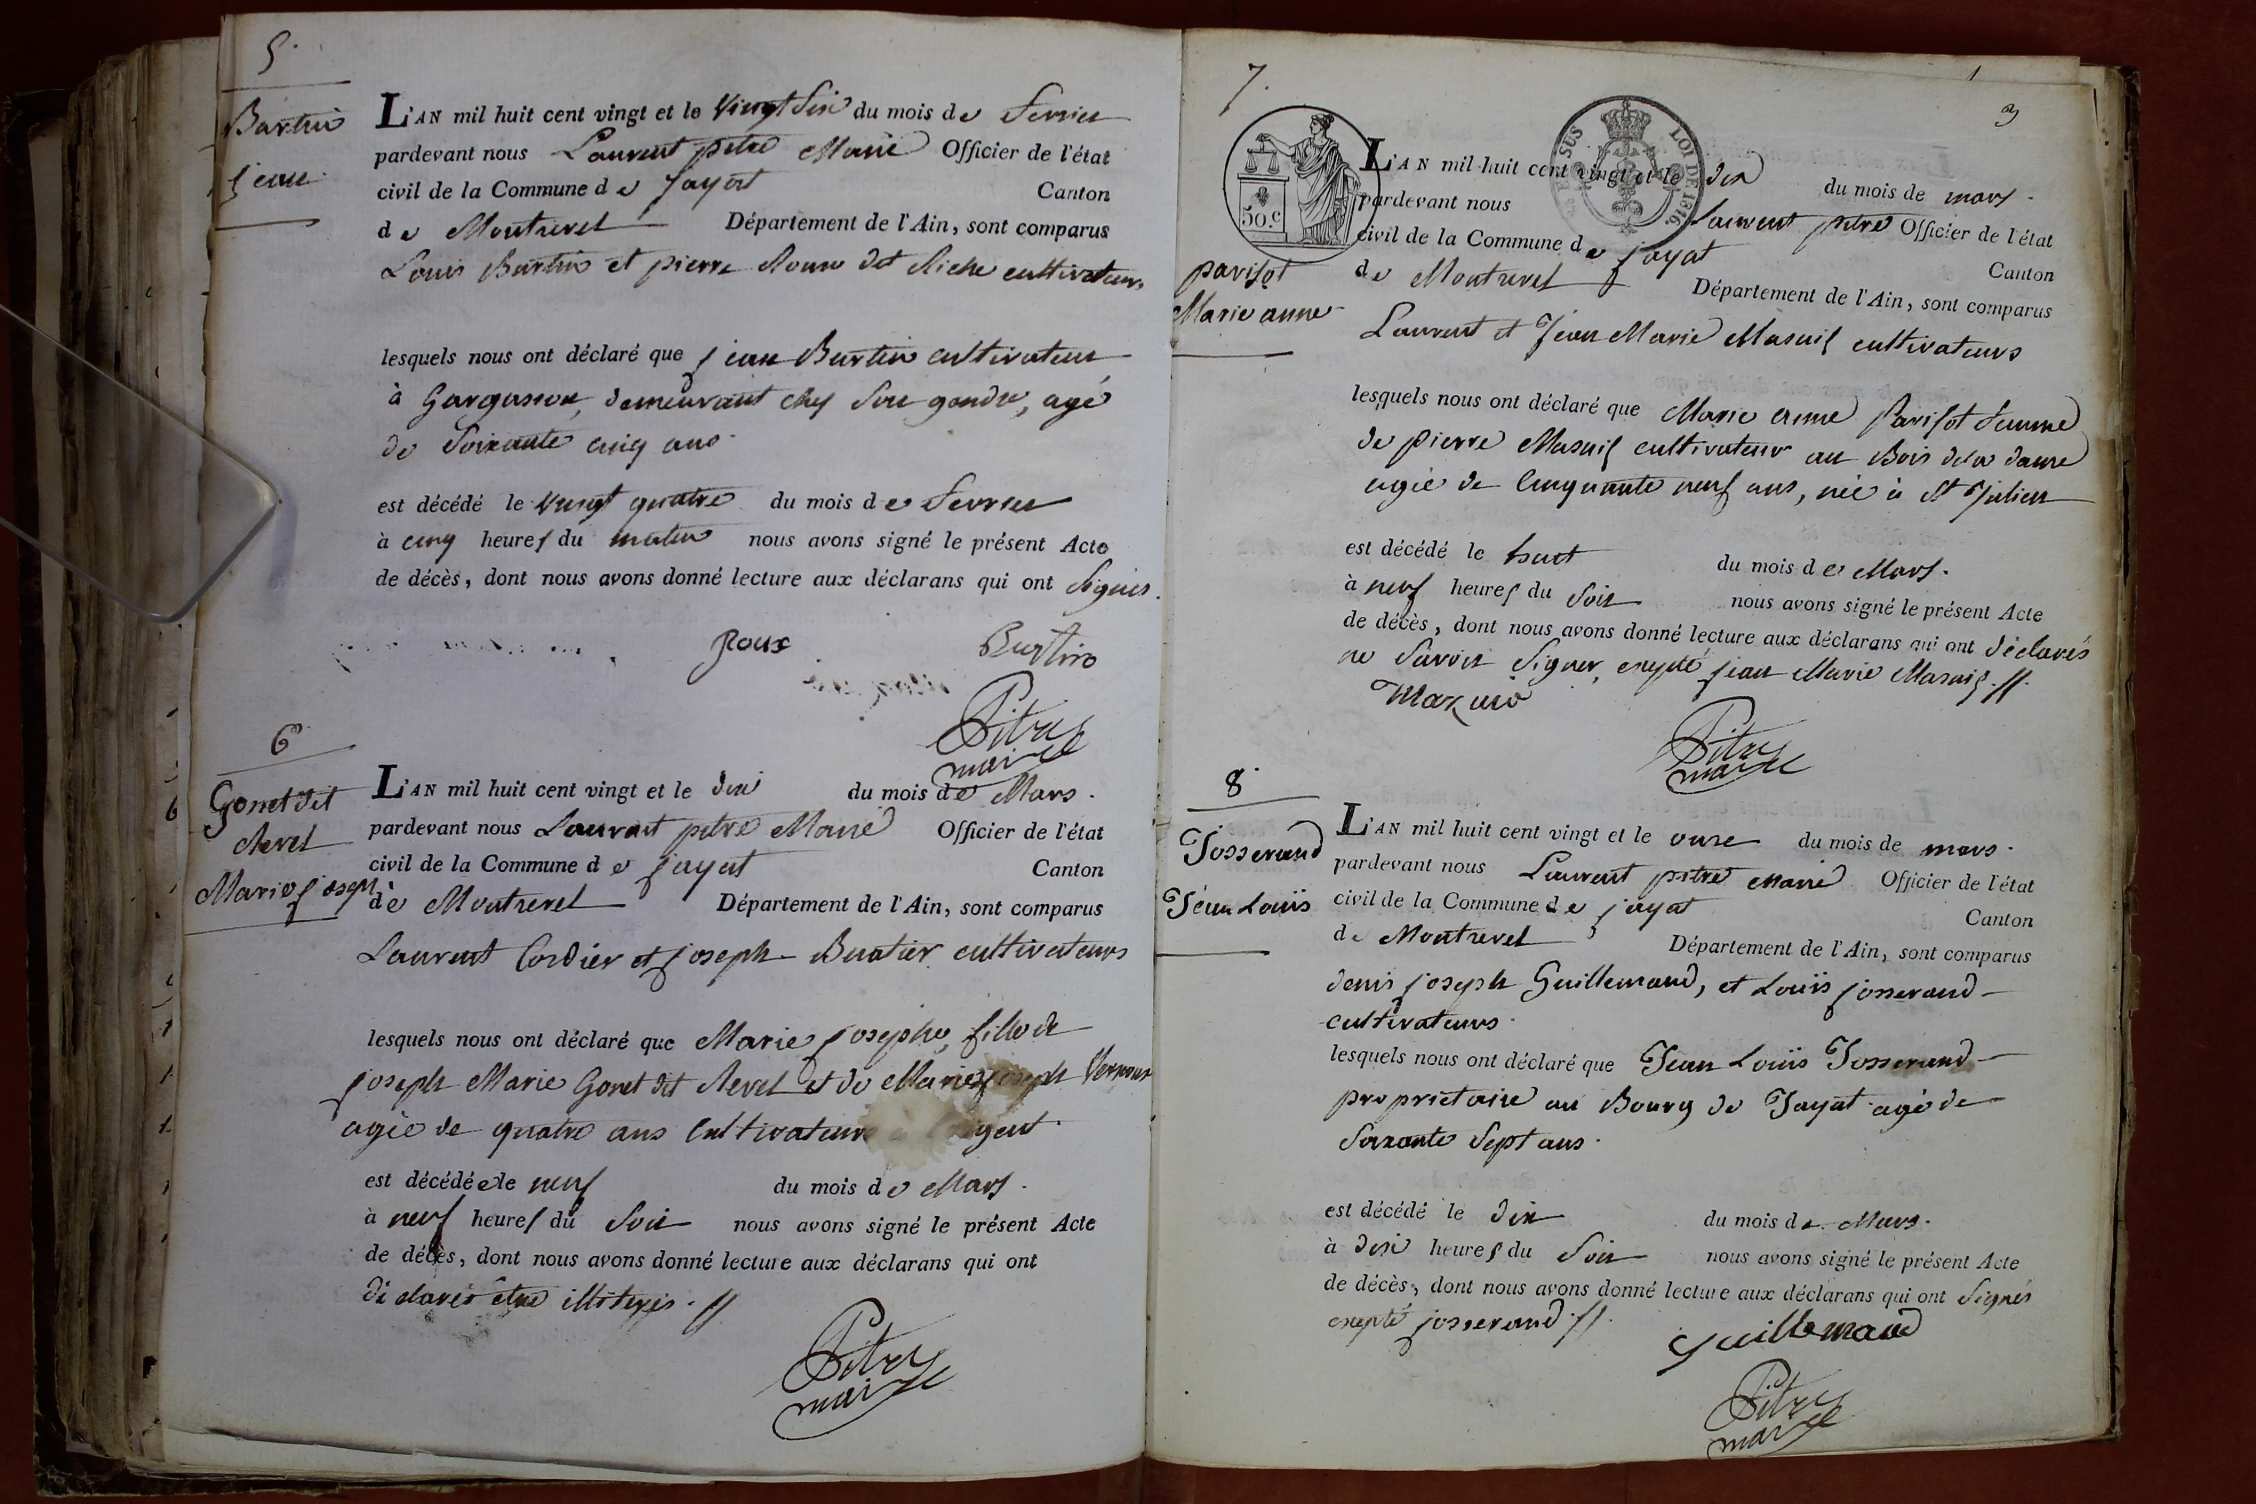 5.
Burtin
jean
L'AN mil huit cent vingt et le Vingt Six du mois de Fevrier
pardevant nous Laurent pitre Maire Officier de l'état
civil de la Commune de jayat Canton
de Montrevel Département de l'Ain, sont comparus
Louis Burtin et pierre Roux dit Riche cultivateurs
lesquels nous ont déclaré que jean Burtin cultivateur
à Gargasson, demeurant chez Son gendre, agé
de Soixante cinq ans.
est décédé le Vingt quatre du mois de Fevrier
à cinq heures du matin nous avons signé le présent Acte
de décès, dont nous avons donné lecture aux déclarans qui ont Signés.
Roux Burtin
Pitre
maire
6
Gonet dit
Revel
Marie joseph
L'AN mil huit cent vingt et le dix du mois de Mars.
pardevant nous Laurent pitre Maire Officier de l'état
civil de la Commune de jayat Canton
de Montrevel Département de l'Ain, sont comparus
Laurent Cordier et joseph Buatier cultivateurs
lesquels nous ont déclaré que Marie josephe, fille de
joseph Marie Gonet dit Revel et de Marie joseph
agée de quatre ans Cultivateurs
est décédée le neuf du mois de Mars.
à neuf heures du Soir nous avons signé le présent Acte
de décès, dont nous avons donné lecture aux déclarans qui ont
déclarés être illiterés.
Pitre
maire
7.
1
3
50.c
SUS
LOI DE 1816.
parisot
Marie anne
L'AN mil huit cent vingt et le dix du mois de mars.
pardevant nous Laurent pitre Officier de l'état
civil de la Commune de jayat Canton
de Montrevel Département de l'Ain, sont comparus
Laurent et Jean Marie Masuis cultivateurs
lesquels nous ont déclaré que Marie anne Parisot femme
de pierre Masuis cultivateur au Bois de la dame
agée de Cinquante neuf ans, née à St Julien
est décédé le huit du mois de Mars.
à neuf heures du Soir nous avons signé le présent Acte
de décès, dont nous avons donné lecture aux déclarans qui ont déclarés
ne Savoir Signer, excepté jean Marie Masuis.
Mazuis
Pitre
maire
8.
Josserand
Jean Louis
L'AN mil huit cent vingt et le onze du mois de mars.
pardevant nous Laurent pitre Maire Officier de l'état
civil de la Commune de jayat Canton
de Montrevel Département de l'Ain, sont comparus
denis joseph Guillemaud, et Louis josserand
cultivateurs.
lesquels nous ont déclaré que Jean Louis Josserand
proprietaire au Bourg de Jayat agé de
Soixante Sept ans.
est décédé le dix du mois de Mars.
à dix heures du Soir nous avons signé le présent Acte
de décès, dont nous avons donné lecture aux déclarans qui ont Signés
excepté josserand.
Guillemaud
Pitre
maire